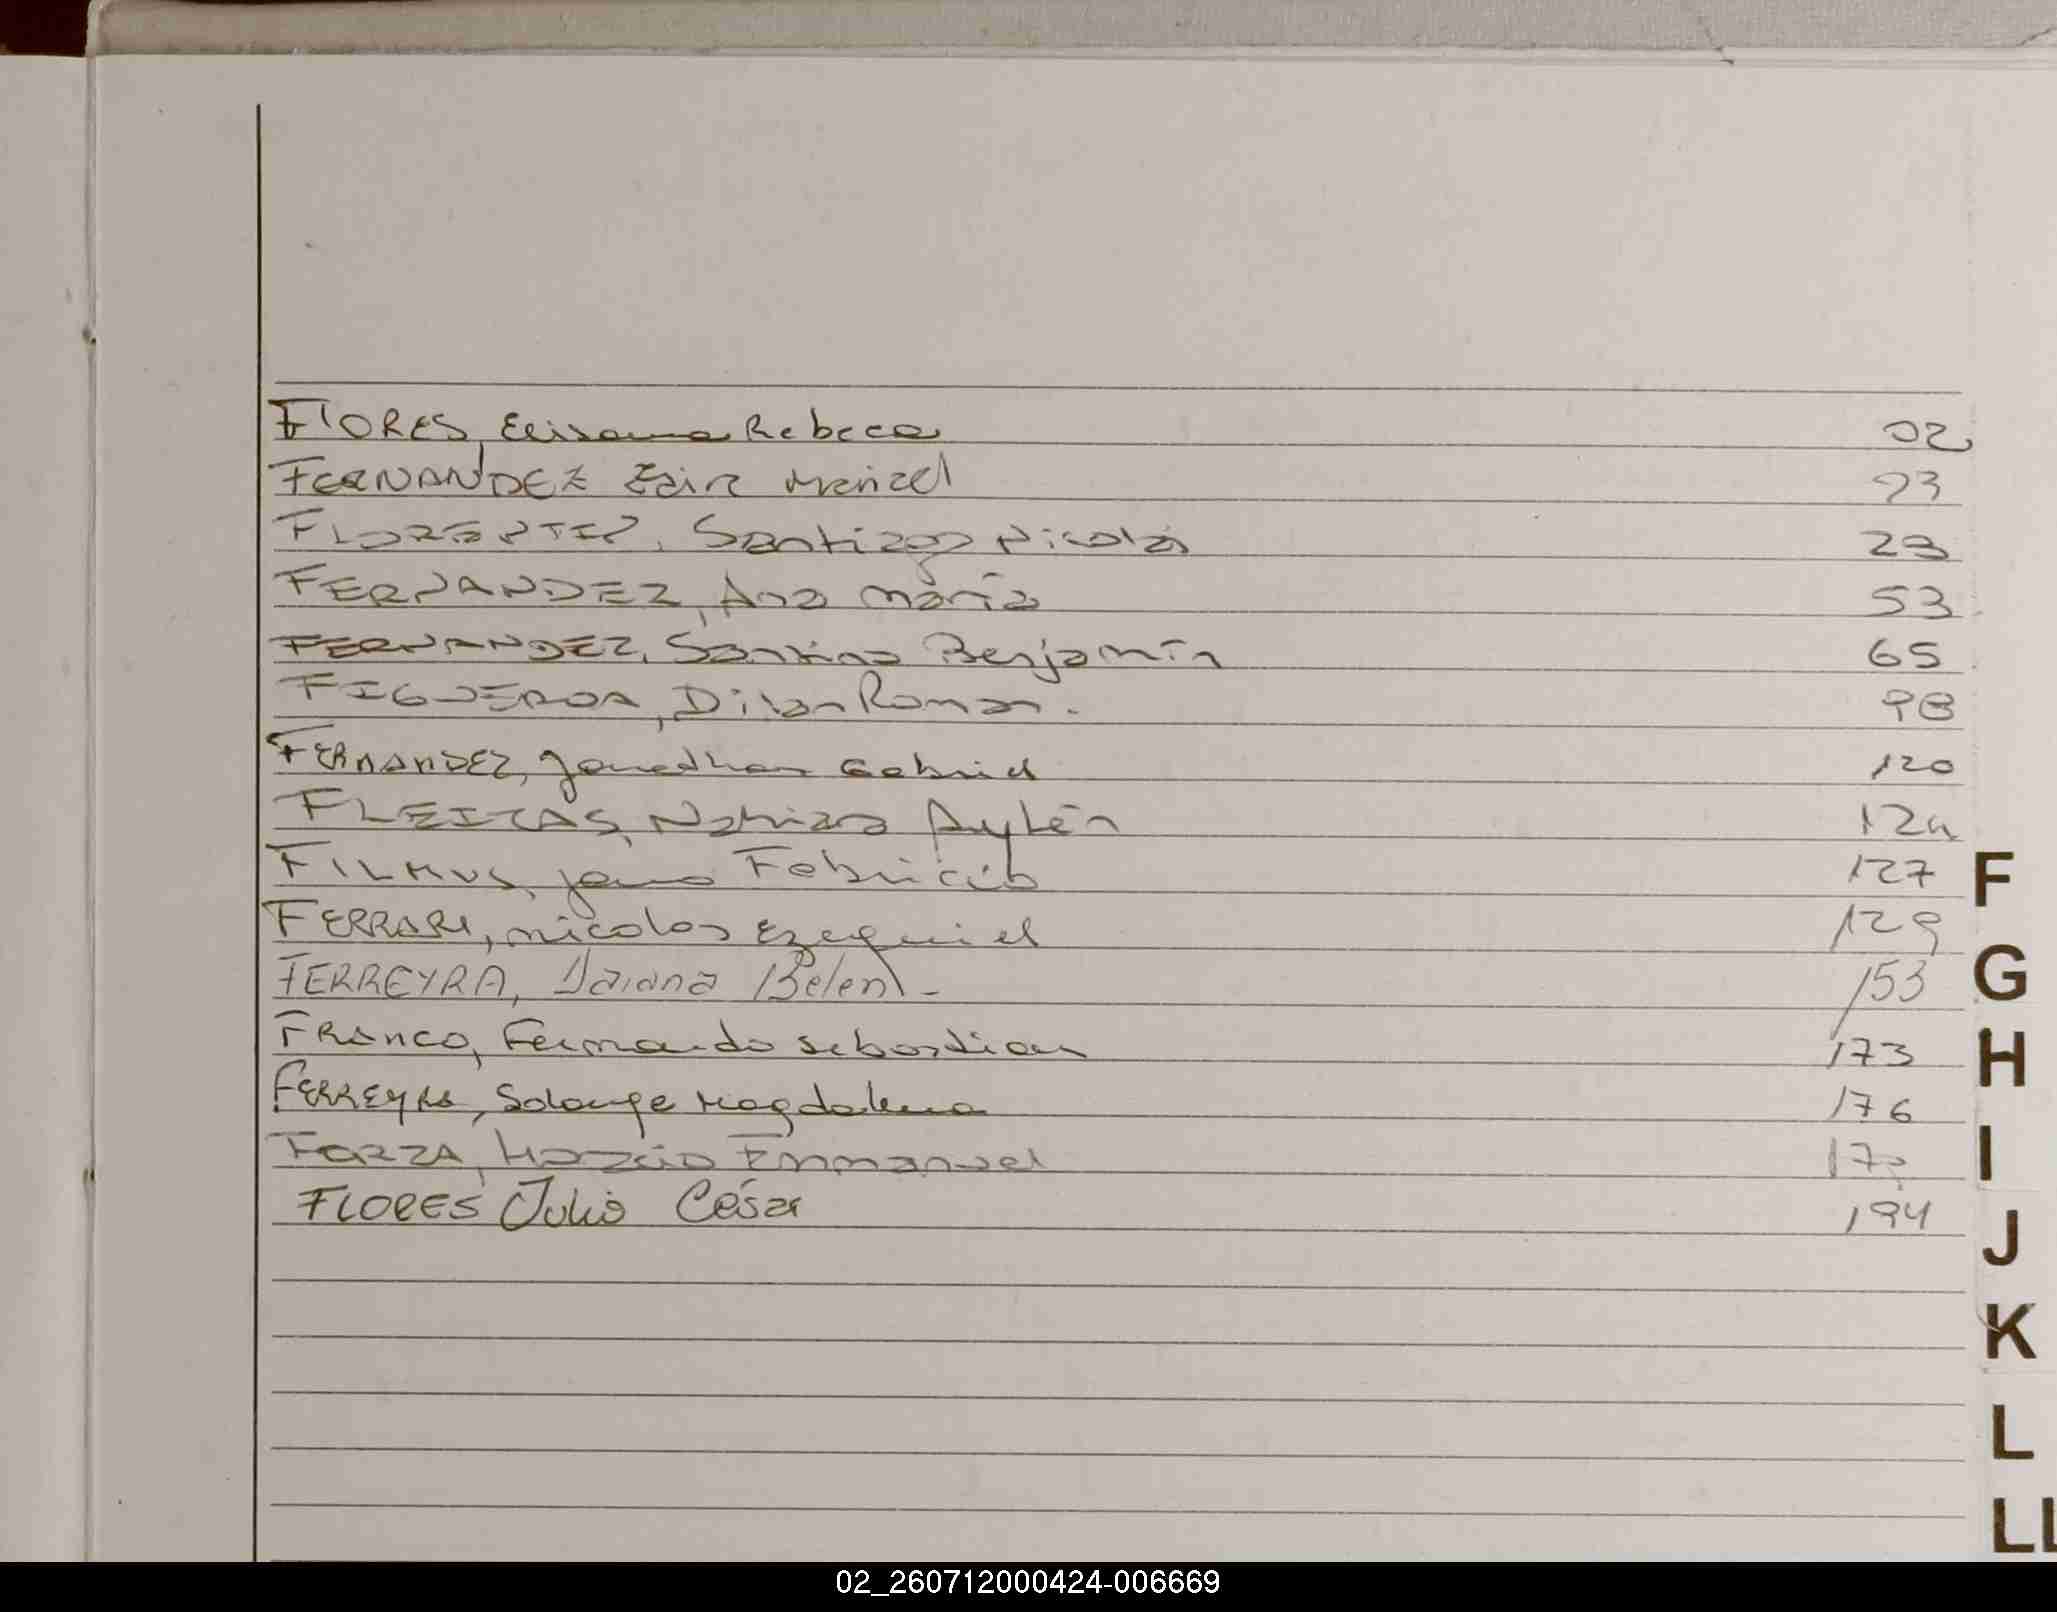 FLORES, Elisama Rebeca 02
FERNANDEZ Eair 23
FLORENTIN, Santiago Nicolás 29
FERNANDEZ, Ana María 53
FERNANDEZ, Santino Benjamín 65
FIGUEROA, Dilan Roman. 98
FERNANDEZ, Jonathan Gabriel 120
FLEITAS, Nahiara Aylén 124
FILMUS, Fabricio 127
FERRARI, nicolas Ezequiel 129
FERREYRA, Daiana Belen - 153
FRANCO, Fernando sebastian 173
FERREYRA, Solange Magdalena 176
Emmanuel
FLORES Julio César 194
F
G
H
I
J
K
L
LL
02_260712000424-006669